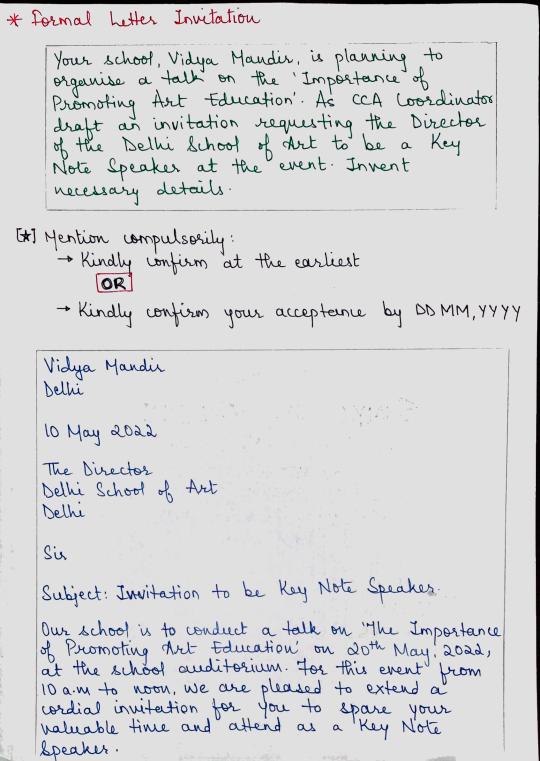 * Formal Letter Invitation
Your school, Vidya Mandir, is planning to
organise a talk on the 'Importance of
Promoting Art Education'. As CCA Coordinator
draft an invitation requesting the Director
of the Delhi School of Art to be a Key
Note Speaker at the event. Invent
necessary details.
[*] Mention compulsorily:
→ Kindly confirm at the earliest
OR
→ Kindly confirm your acceptance by DD MM, YYYY
Vidya Mandir
Delhi
10 May 2022
The Director
Delhi School of Art
Delhi
Sir
Subject: Invitation to be Key Note Speaker.
Our school is to conduct a talk on 'The Importance
of Promoting Art Education' on 20th May, 2022,
at the school auditorium. For this event from
10 a.m to noon, we are pleased to extend a
cordial invitation for you to spare your
valuable time and attend as a Key Note
Speaker.